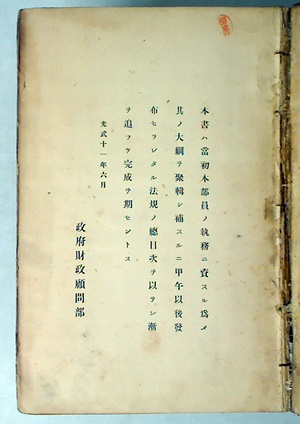 本書ハ當初本部員ノ執務ニ資スル爲メ
其ノ大綱ヲ聚輯シ補スルニ甲午以後發
布セラレタル法規ノ總目次ヲ以テシ漸
ヲ追フテ完成ヲ期セントス
光武十一年六月
政府財政顧問部